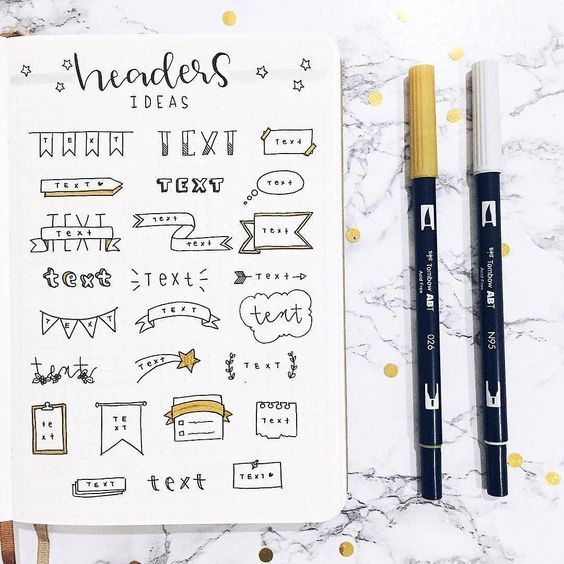 headers
IDEAS
TEXT TEXT Text
TEXT TEXT TEXT
TEXT Text Text text Text
text Text Text
TEXT TEXT text
text TEXT TEXT
te xt TE XT Text
TEXT text TEXT
Tombow ABT
Acid Free
026
Tombow ABT
Acid Free
N95